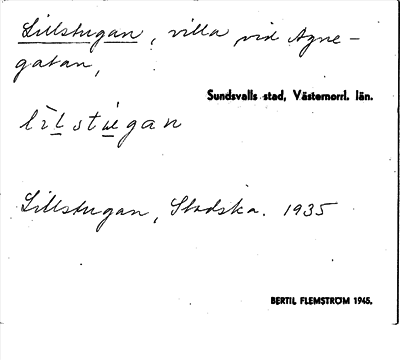 Lillstugan, villa vid Agne-
gatan,
Sundsvalls stad, Västernorrl. län.
lìlstúgan
Lillstugan, Stadska. 1935
BERTIL FLEMSTRÖM 1945.